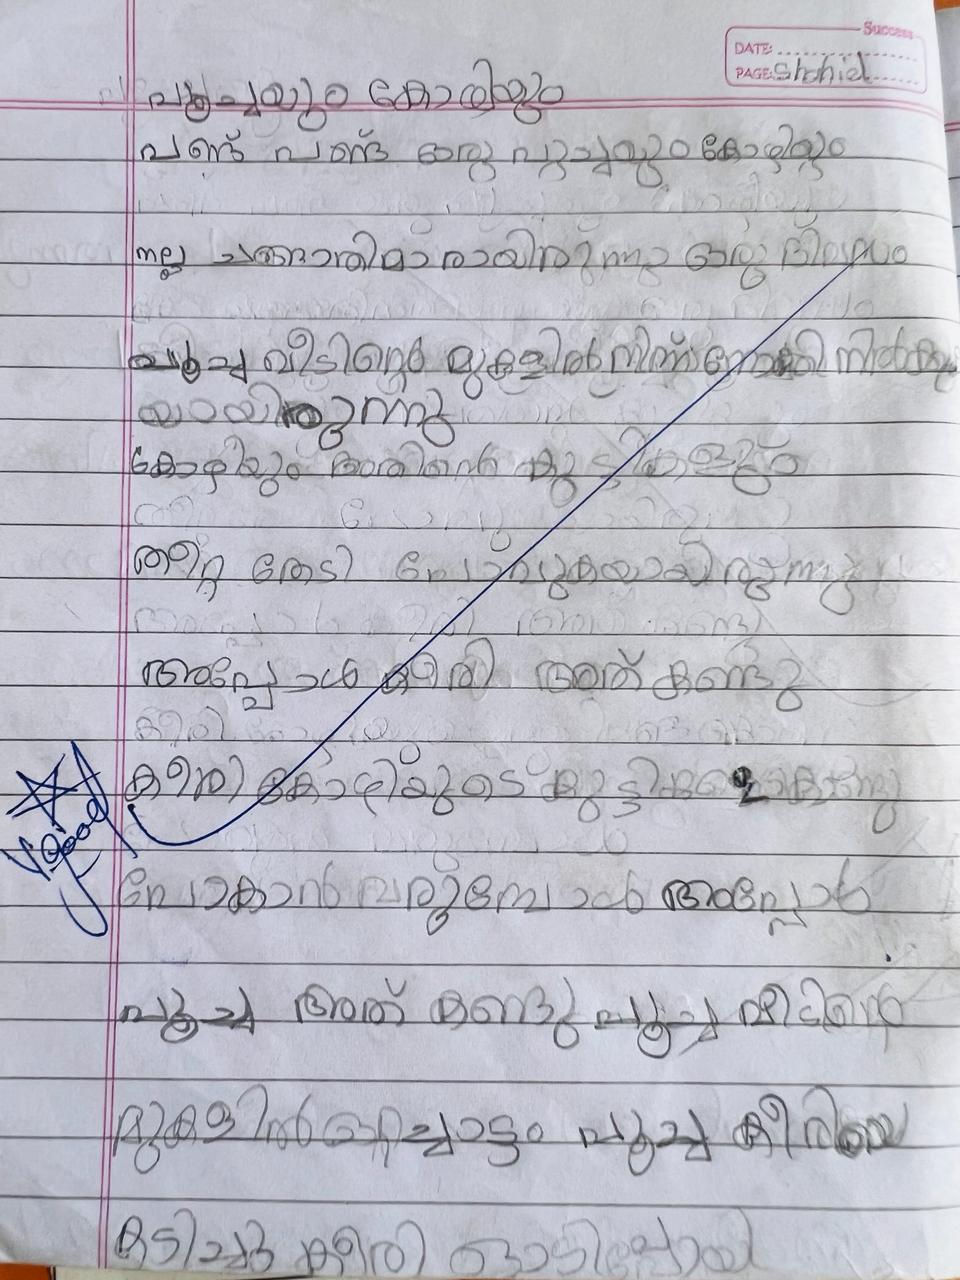 Success
DATE:
PAGE: Shahid
പൂച്ചയും കോഴിയും
പണ്ട് പണ്ട് ഒരു പൂച്ചയും കോഴിയും
നല്ല ചങ്ങാതിമാരായിരുന്നു ഒരു ദിവസം
പൂച്ച വീടിന്റെ മുകളിൽ നിന്ന് നോക്കി നിൽക്കു
യായിരുന്നു
കോഴിയും അതിന്റെ കുട്ടികളും
തീറ്റ തേടി പോവുകയായിരുന്നു
അപ്പോൾ കീരി അത് കണ്ടു
കീരി കോഴിയുടെ
പോകാൻ വരുമ്പോൾ അപ്പോൾ
പൂച്ച അത് കണ്ടു പൂച്ച വീടിന്റെ
മുകളിൽ ഒറ്റച്ചാട്ടം പൂച്ച കീരിയെ
കടിച്ചു കീരി ഓടിപ്പോയി
V good